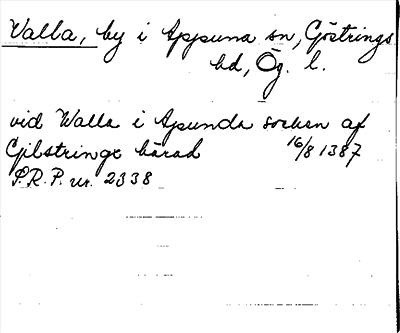 Valla, by i Appuna sn, Göstrings
hd, Ög. l.
vid Walla i Apunda socken af
Gjlstringe härad 16/8 1387
S.R.P. nr. 2338